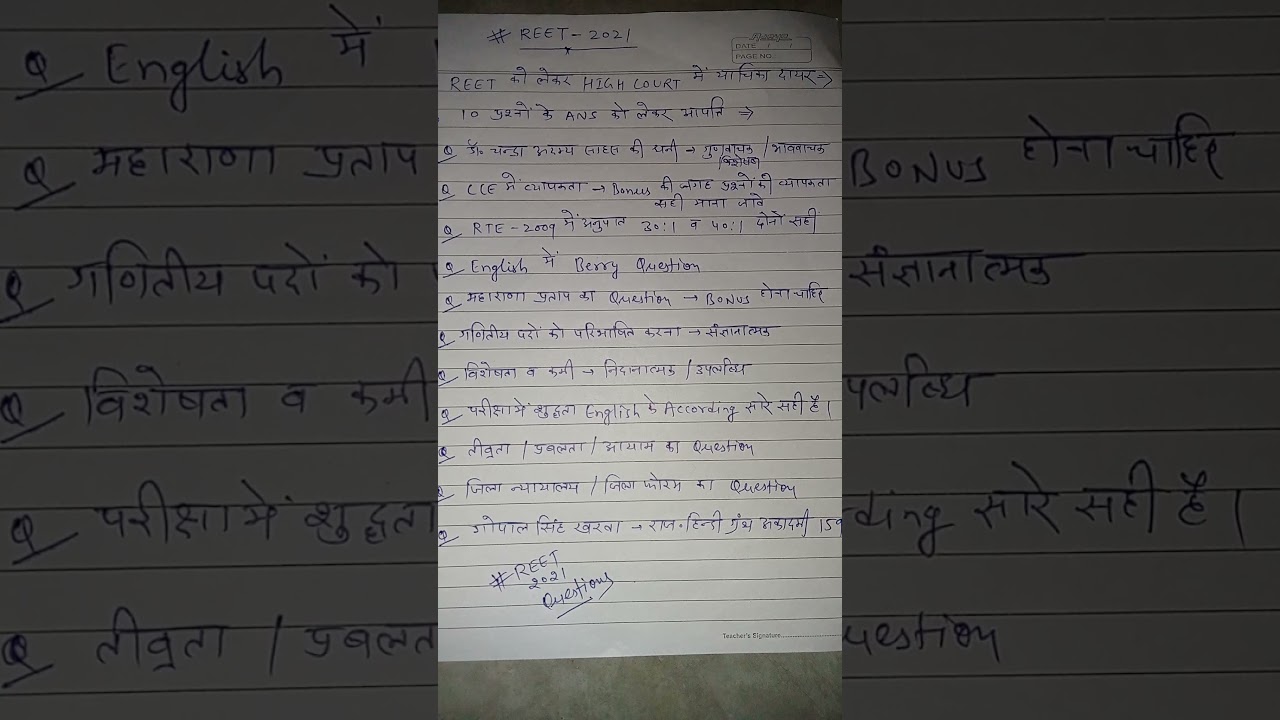 # REET - 2021
DATE / /
PAGE NO.
REET को लेकर HIGH COURT में याचिका दायर ⇒
10 प्रश्नों के ANS को लेकर आपत्ति ⇒
Q डॉ. चन्द्रा अदम्य साहस की धनी → गुणवाचक / भाववाचक
विशेषण
Q CCE में व्यापकता → Bonus की जगह प्रश्नों की व्यापकता
सही माना जावे
Q RTE - 2009 में अनुपात 30:1 व 40:1 दोनों सही
Q English में Berry Question
Q महाराणा प्रताप का Question → BONUS होना चाहिए
Q गणितीय पदों को परिभाषित करना → संज्ञानात्मक
Q विशेषता व कमी → निदानात्मक / उपलब्धि
Q परीक्षा में शुद्धता English के According सारे सही है।
Q तीव्रता / प्रबलता / आयाम का Question
Q जिला न्यायालय / जिला फोरम का Question
Q गोपाल सिंह खरवा → राज. हिन्दी ग्रंथ अकादमी
# REET
2021
Questions
Teacher's Signature
Q English में
Q महाराणा प्रताप
Q गणितीय पदों को
Q विशेषता व कमी
Q परीक्षा में शुद्धता
Q तीव्रता / प्रबलता
BONUS होना चाहिए
संज्ञानात्मक
पलब्धि
ding सारे सही है।
uestion